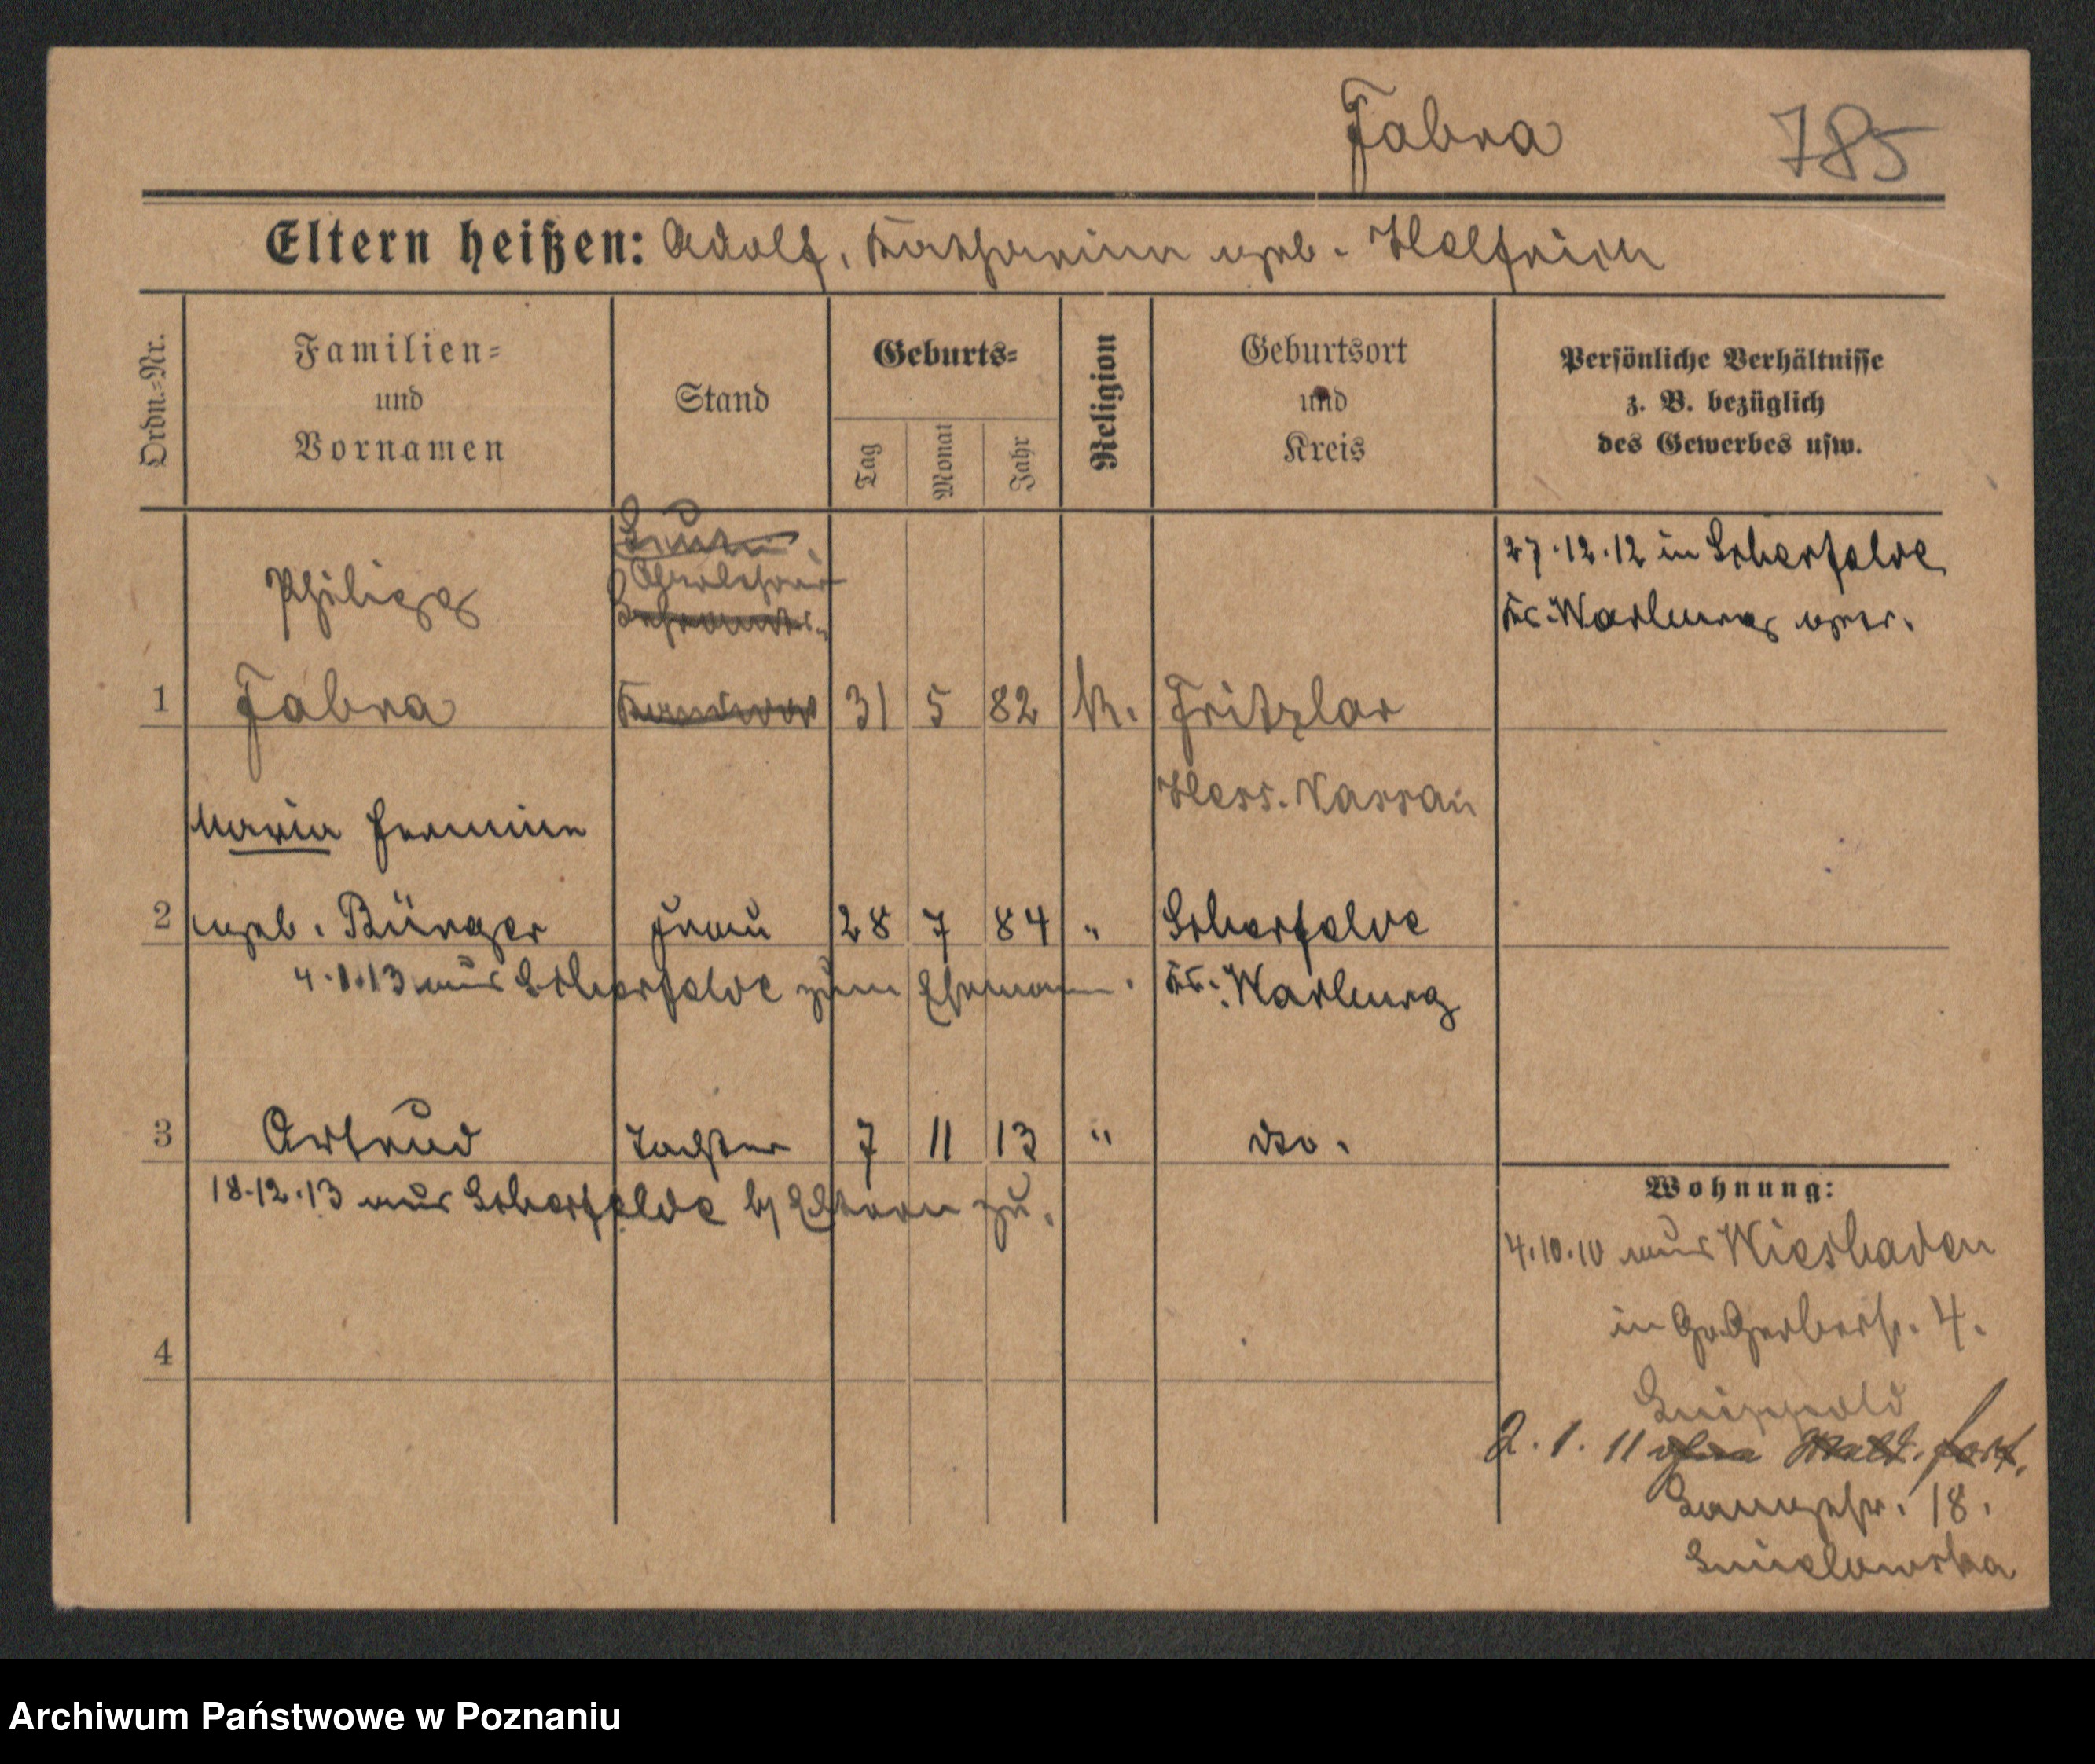 Fabra 785
Eltern heißen: Adolf, Katharina geb. Helfrich
Ordn.=Nr.
Familien=
und
Vornamen
Stand
Geburts=
Tag
Monat
Jahr
Religion
Geburtsort
und
Kreis
Persönliche Verhältnisse
z. B. bezüglich
des Gewerbes usw.
Oberlehrer
27.12.12 in Scherfelde
Kr. Warburg getr.
Philipp
1 Fabra 31 5 82 k. Fritzlar
Hess. Nassau
Maria Hermine
2 geb. Bünger Frau 28 7 84 " Scherfelde
4.1.13 aus Scherfelde zum Ehemann. Kr. Warburg
3 Ortrud Tochter 7 11 13 " dto.
18.12.13 aus Scherfelde b/ Eltern zu.
4
Wohnung:
4.10.10 aus Wiesbaden
in Gr. Gerberstr. 4.
2.1.11
Langestr. 18.
Archiwum Państwowe w Poznaniu